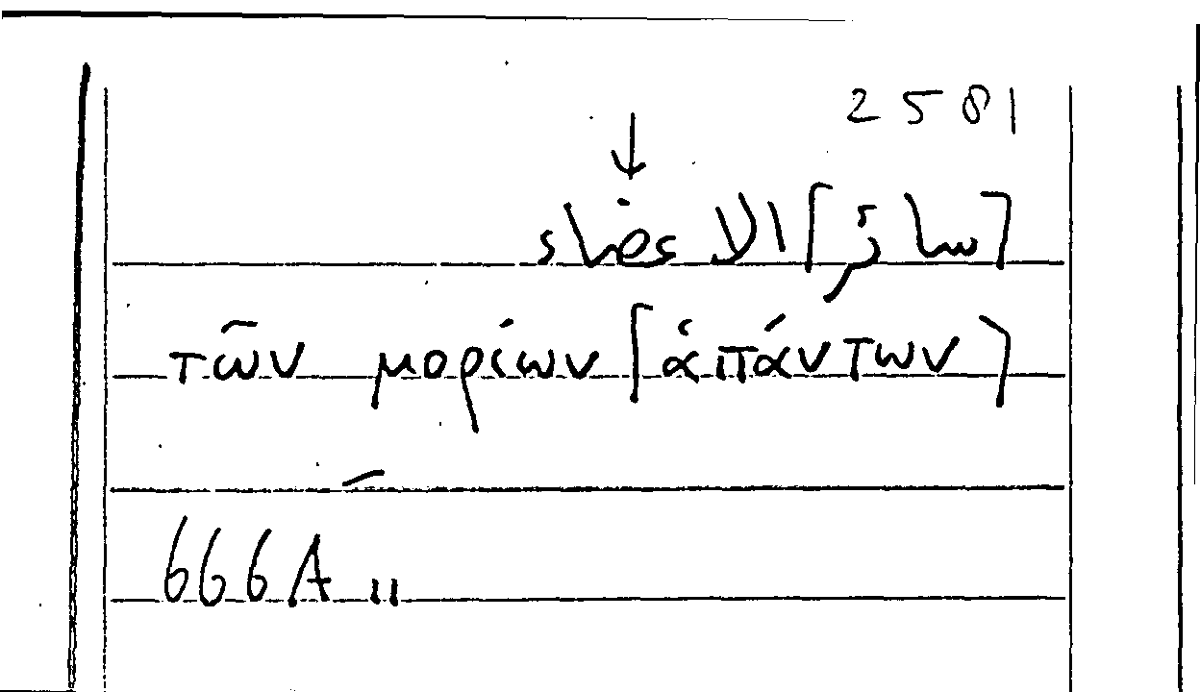 2581
↓
[سائر] الاعضاء
τῶν μορίων [ἁπάντων]
666A 11